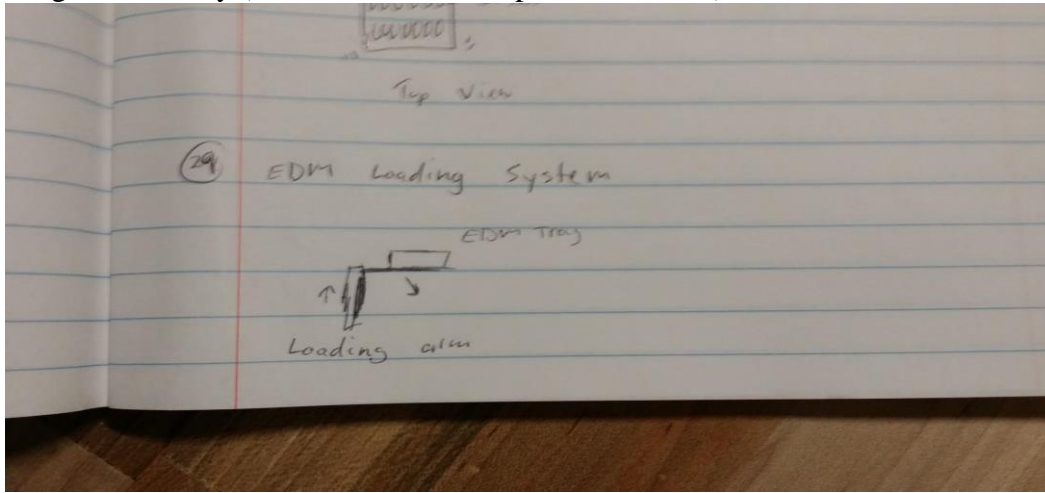 Top View
29 EDM Loading System
EDM Tray
Loading arm